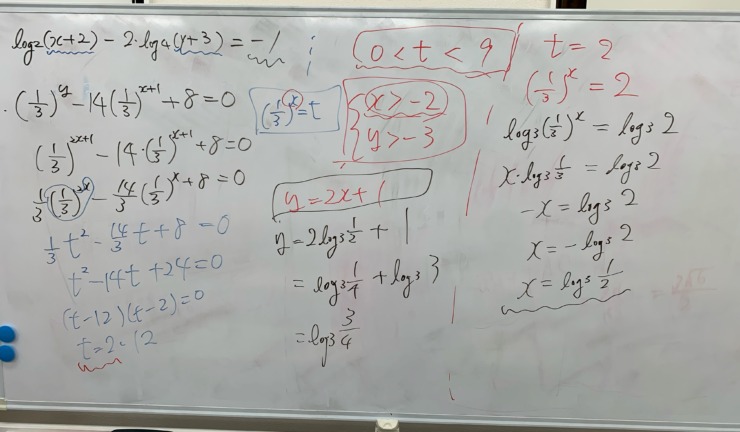 log₂(x+2) - 2·log₄(y+3) = -1
(1/3)^y - 14(1/3)^(x+1) + 8 = 0
(1/3)^(2x+1) - 14·(1/3)^(x+1) + 8 = 0
1/3(1/3)^(2x) - 14/3(1/3)^x + 8 = 0
1/3t² - 14/3t + 8 = 0
t² - 14t + 24 = 0
(t-12)(t-2) = 0
t = 2, 12
(1/3)^x = t
0 < t < 9
x > -2
y > -3
y = 2x + 1
y = 2log₃1/2 + 1
= log₃1/4 + log₃3
= log₃3/4
t = 2
(1/3)^x = 2
log₃(1/3)^x = log₃2
x·log₃1/3 = log₃2
-x = log₃2
x = -log₃2
x = log₃1/2